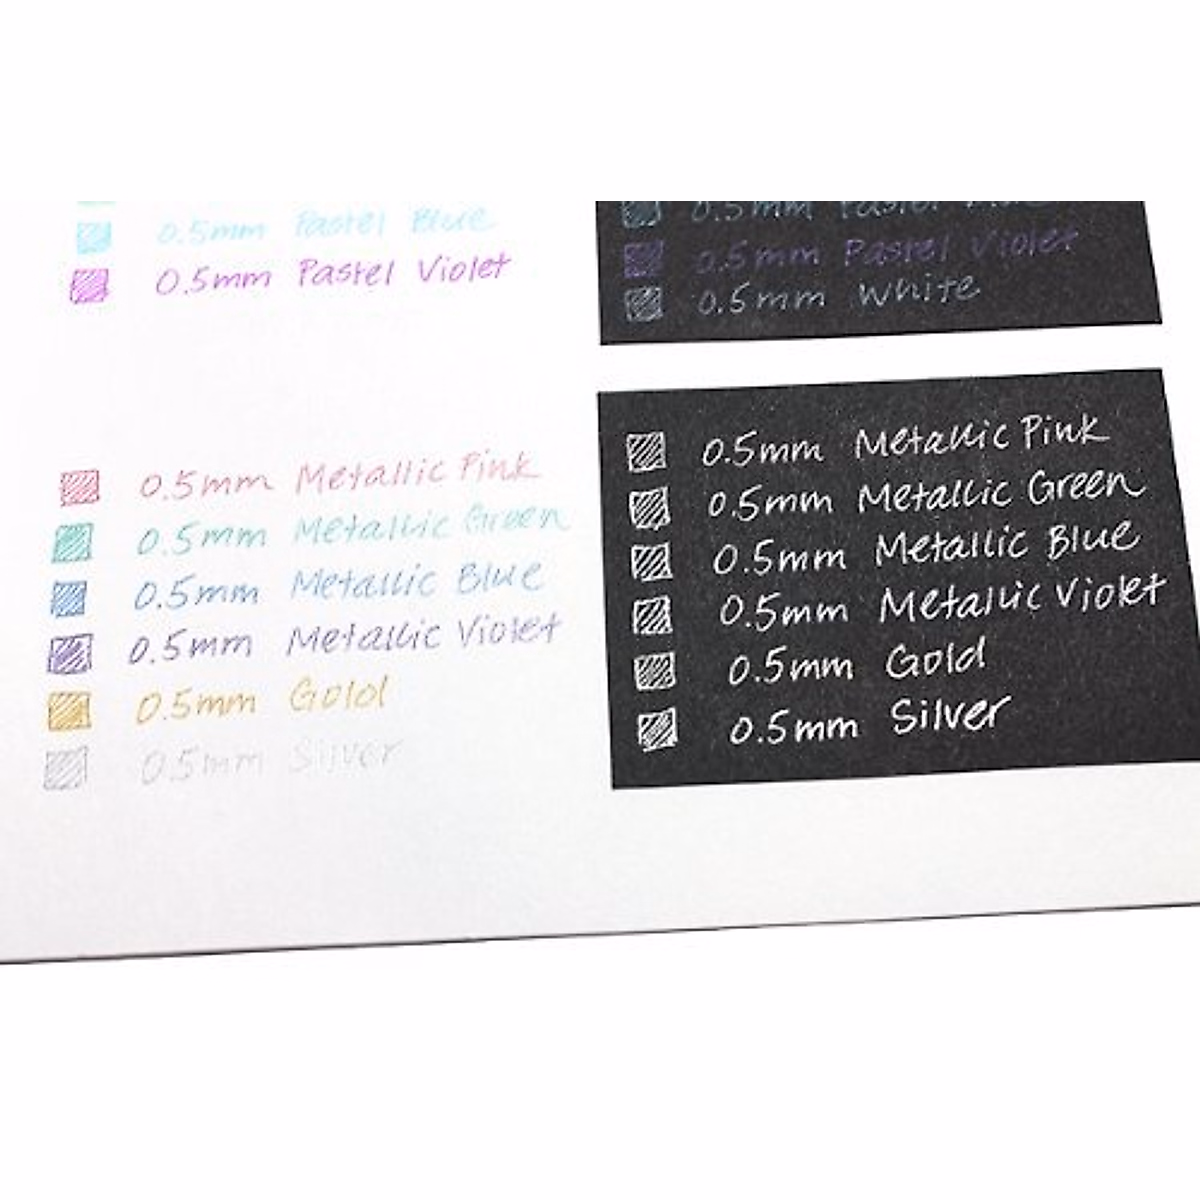 0.5mm Pastel Blue
0.5mm Pastel Violet
0.5mm Metallic Pink
0.5mm Metallic Green
0.5mm Metallic Blue
0.5mm Metallic Violet
0.5mm Gold
0.5mm Silver
0.5mm Pastel Blue
0.5mm Pastel Violet
0.5mm White
0.5mm Metallic Pink
0.5mm Metallic Green
0.5mm Metallic Blue
0.5mm Metallic Violet
0.5mm Gold
0.5mm Silver